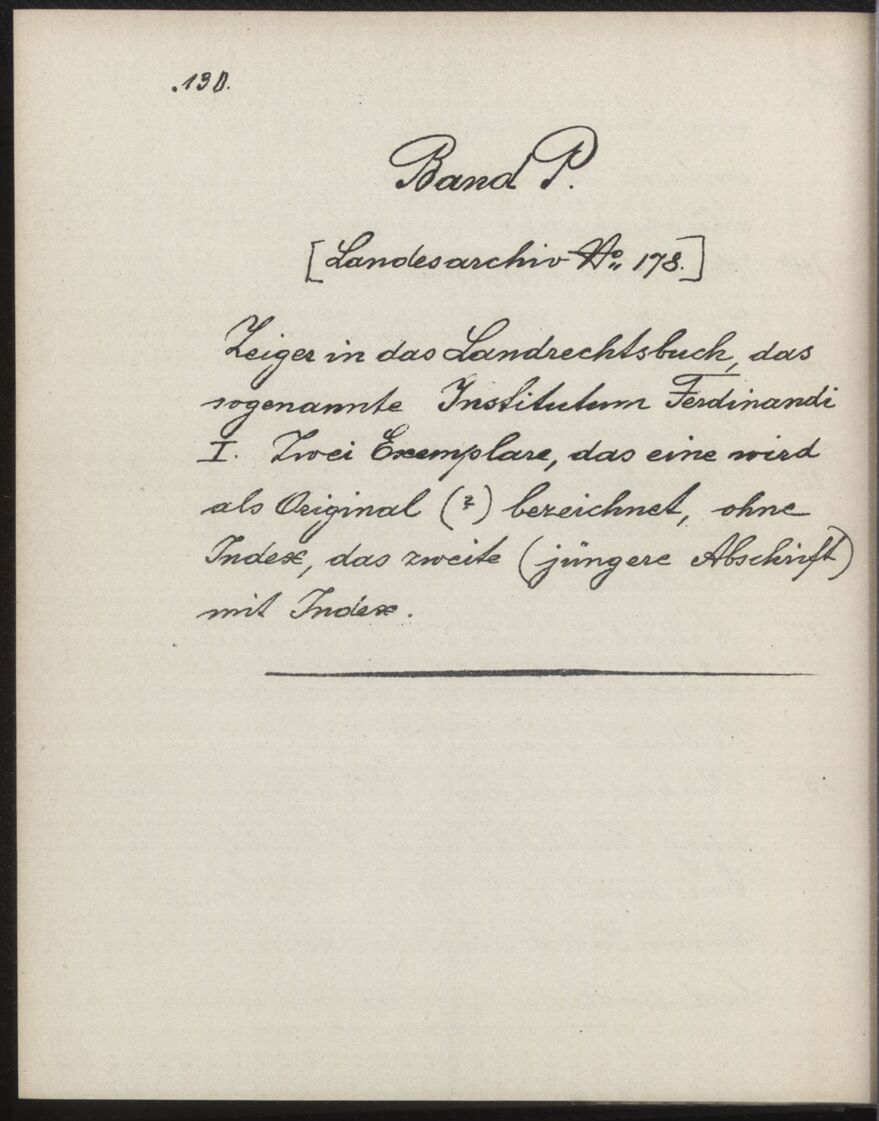 .130.
Band P.
[Landesarchiv No. 178.]
Zeiger in das Landrechtsbuch, das
sogenannte Institutum Ferdinandi
I. Zwei Exemplare, das eine wird
als Original (?) bezeichnet, ohne
Index, das zweite (jüngere Abschrift)
mit Index.